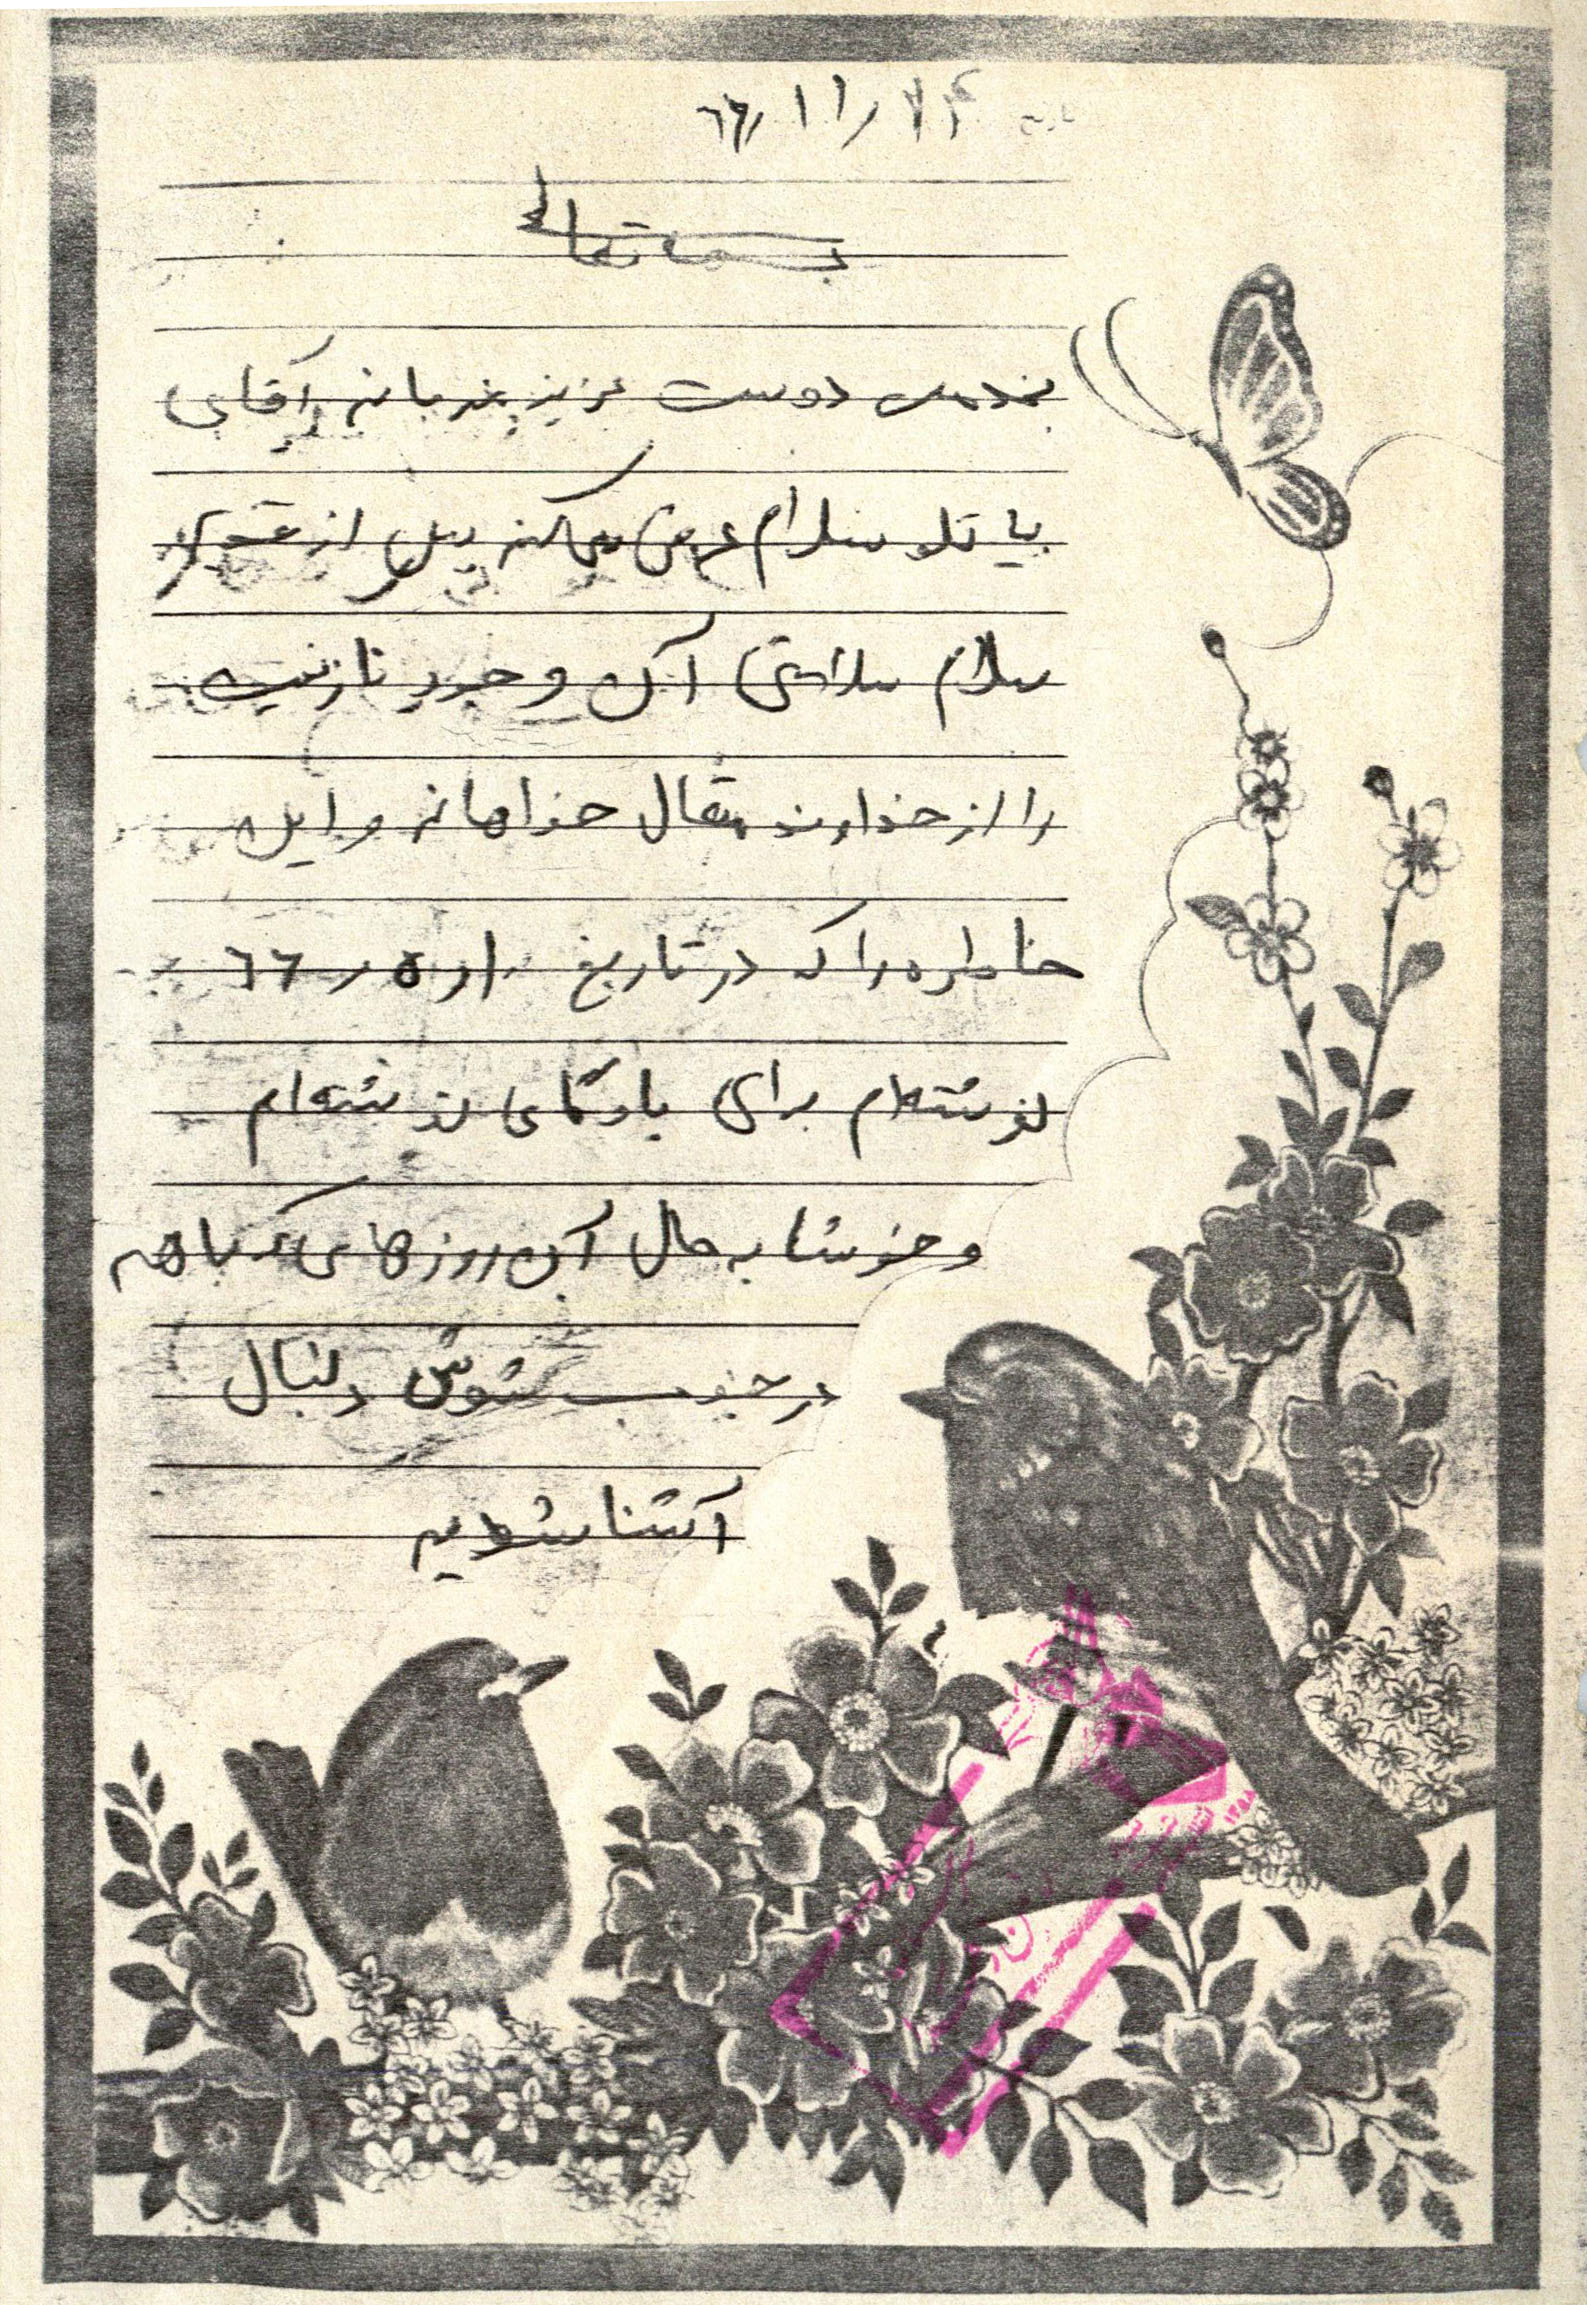 تاریخ ۲۴ / ۱۱ / ۶۶
بسمه تعالی
بخدمت دوست عزیز و مهربانم آقای
سلام عرض میکنم پس از تقدیم
سلام سلامتی آن وجود نازنینت
را از خداوند متعال خواهانم و این
خاطره را که در تاریخ ۶۶
نوشته‌ام برای یادگاری نوشته‌ام
و خوشا به حال آن روزهای که با هم
در جنوب شوش دنبال
آشنا شدیم